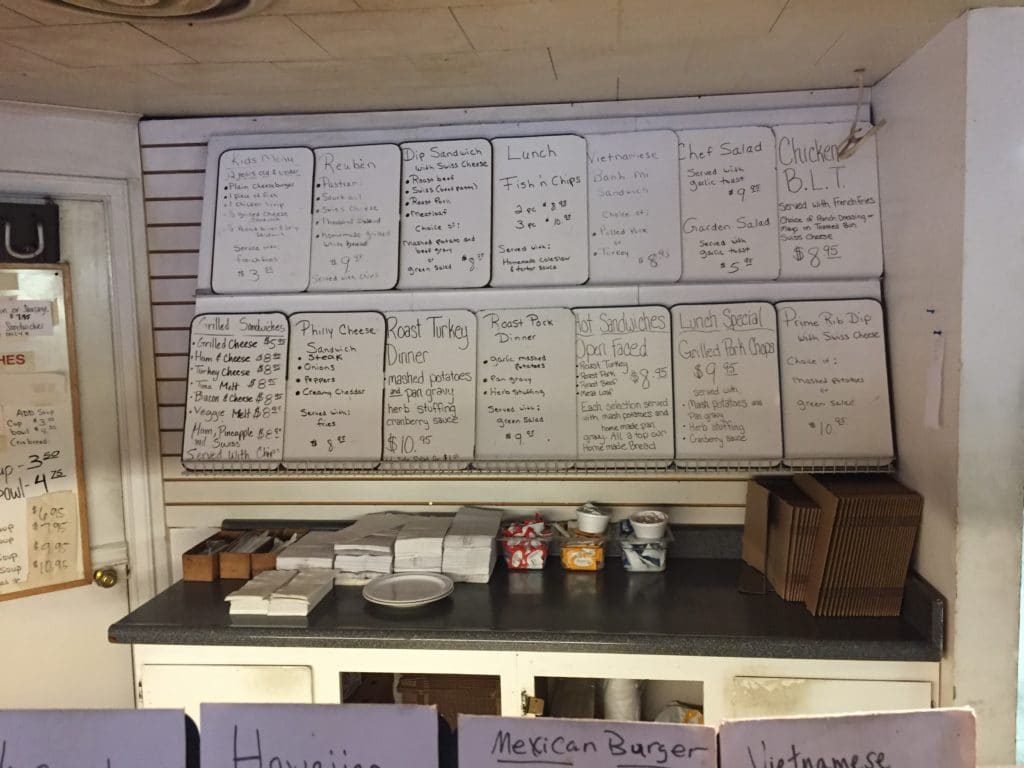 Kids Menu
12 years old & under
• Plain Cheeseburger
• 1 piece of fish
• 1 Chicken Strip
• ½ grilled Cheese
Sandwich
Sandwich
Served with
french fries
$3.95
Reuben
• Pastrami
• Sauerkraut
• Swiss Cheese
• Thousand Island
• Homemade grilled
White Bread
$9.95
Served with Chips
Dip Sandwich
with Swiss Cheese
• Roast beef
• Roast Pork
• Meatloaf
Choice of:
mashed potato and
beef gravy
or
green Salad
$8.95
Lunch
Fish 'n Chips
2 pc $8.95
3 pc $10.95
Served with:
Homemade Coleslaw
& tartar sauce
Vietnamese
Banh Mi
Sandwich
Choice of:
• Pulled Pork
or
• Turkey $8.95
Chef Salad
Served with
garlic toast
$9.95
Garden Salad
Served with
garlic toast
$5.95
Chicken
B.L.T.
Served with French fries
Choice of Ranch Dressing or
Mayo on Toasted Bun
Swiss Cheese
$8.95
Grilled Sandwiches
• Grilled Cheese $5.95
• Ham & Cheese $8.95
• Turkey Cheese $8.95
• Tuna Melt $8.95
• Bacon & Cheese $8.95
• Veggie Melt $8.95
Ham, Pineapple
Swiss
Served With Chips
Philly Cheese
Sandwich
• Steak
• Onions
• Peppers
• Creamy Cheddar
Served with:
fries
$8.95
Roast Turkey
Dinner
mashed potatoes
and pan gravy
herb stuffing
cranberry sauce
$10.95
Roast Pork
Dinner
• Garlic mashed
potatoes
• Pan gravy
• Herb stuffing
Served with:
green Salad
$9.95
Hot Sandwiches
Open Faced
• Roast Turkey
• Roast Pork
• Roast Beef
• Meat Loaf
$8.95
Each selection served
with mash potatoes and
home made pan
gravy. All a top our
Home made Bread
Lunch Special
Grilled Pork Chops
$9.95
served with
• Mash potatoes and
Pan gravy
• Herb stuffing
• Cranberry Sauce
Prime Rib Dip
with Swiss Cheese
Choice of:
Mashed Potatoes
or
green Salad
$10.95
or Sausage
$7.95
Sandwiches
HES
ADD Soup
Cup $3.00
bowl $4.00
Cornbread
up - 3.50
Bowl - 4.75
$6.95
oup $7.95
$9.95
Soup $10.95
Hawaiian
Mexican Burger
Vietnamese